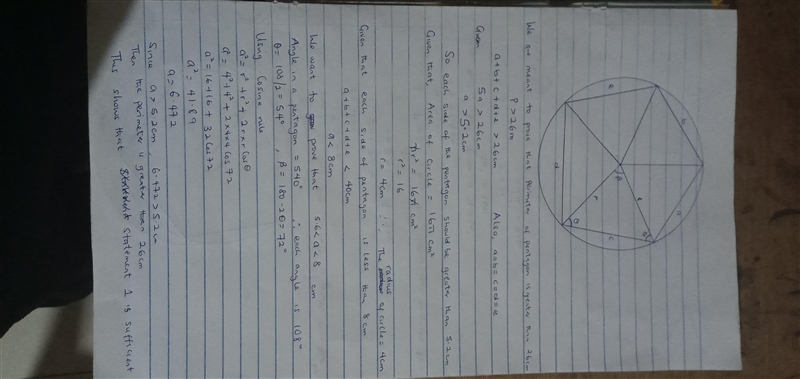 e
b
a
d
r
r
β
θ
θ
c
We are meant to prove that Perimeter of pentagon is greater than 26cm
P > 26cm
a+b+c+d+e > 26cm Also, a=b=c=d=e
Given
5a > 26cm
a > 5.2cm
So each side of the pentagon should be greater than 5.2cm
Given that, Area of circle = 16π cm²
πr² = 16π cm²
r² = 16
r = 4cm ∴ The radius of circle = 4cm
Given that each side of pentagon is less than 8cm
a+b+c+d+e < 40cm
a < 8cm
We want to prove that 5.6 < a < 8 cm
Angle in a pentagon = 540° ∴ each angle is 108°
θ = 108/2 = 54° , β = 180-2θ = 72°
Using Cosine rule
a² = r² + r² + 2×r×r cos θ
a² = 4² + 4² + 2×4×4 cos 72
a² = 16+16 + 32 cos 72
a² = 41.89
a = 6.472
Since a > 5.2cm 6.472 > 5.2cm
Then the perimeter is greater than 26cm
This shows that statement 1 is sufficient